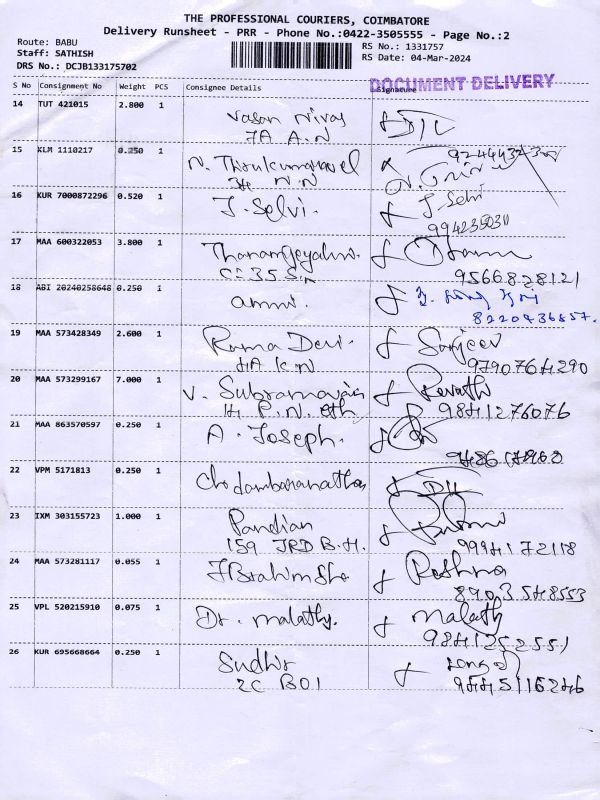 THE PROFESSIONAL COURIERS, COIMBATORE
Delivery Runsheet - PRR - Phone No.:0422-3505555 - Page No.:2
Route: BABU
RS No.: 1331757
Staff: SATHISH
RS Date: 04-Mar-2024
DRS No.: DCJB133175702
DOCUMENT DELIVERY
S No Consignment No Weight PCS Consignee Details Signature
14 TUT 421015 2.800 1
Vasan Nivas
7A A.N
15 KLM 1110217 0.250 1
N.
N.N
16 KUR 7000872296 0.520 1 J. Selvi. J. Selvi
17 MAA 600322053 3.800 1
9566828121
18 ABI 20240258648 0.250 1 ammi.
8220936857.
19 MAA 573428349 2.600 1 Rama Devi. Sanjeev
4A K.N 9790764290
20 MAA 573299167 7.000 1 V. Revathi
14 P.N. 9841276076
21 MAA 863570597 0.250 1 A. Joseph.
22 VPM 5171813 0.250 1 Chidambaranathan
23 IXM 303155723 1.000 1 Pandian
159 JRD B.H. 9994172118
24 MAA 573281117 0.055 1 Roshna
8903548553
25 VPL 520215910 0.075 1 Dr. Malathy. Malathy
9841252551
26 KUR 695668664 0.250 1 Sudhir
2C B01 9445116246